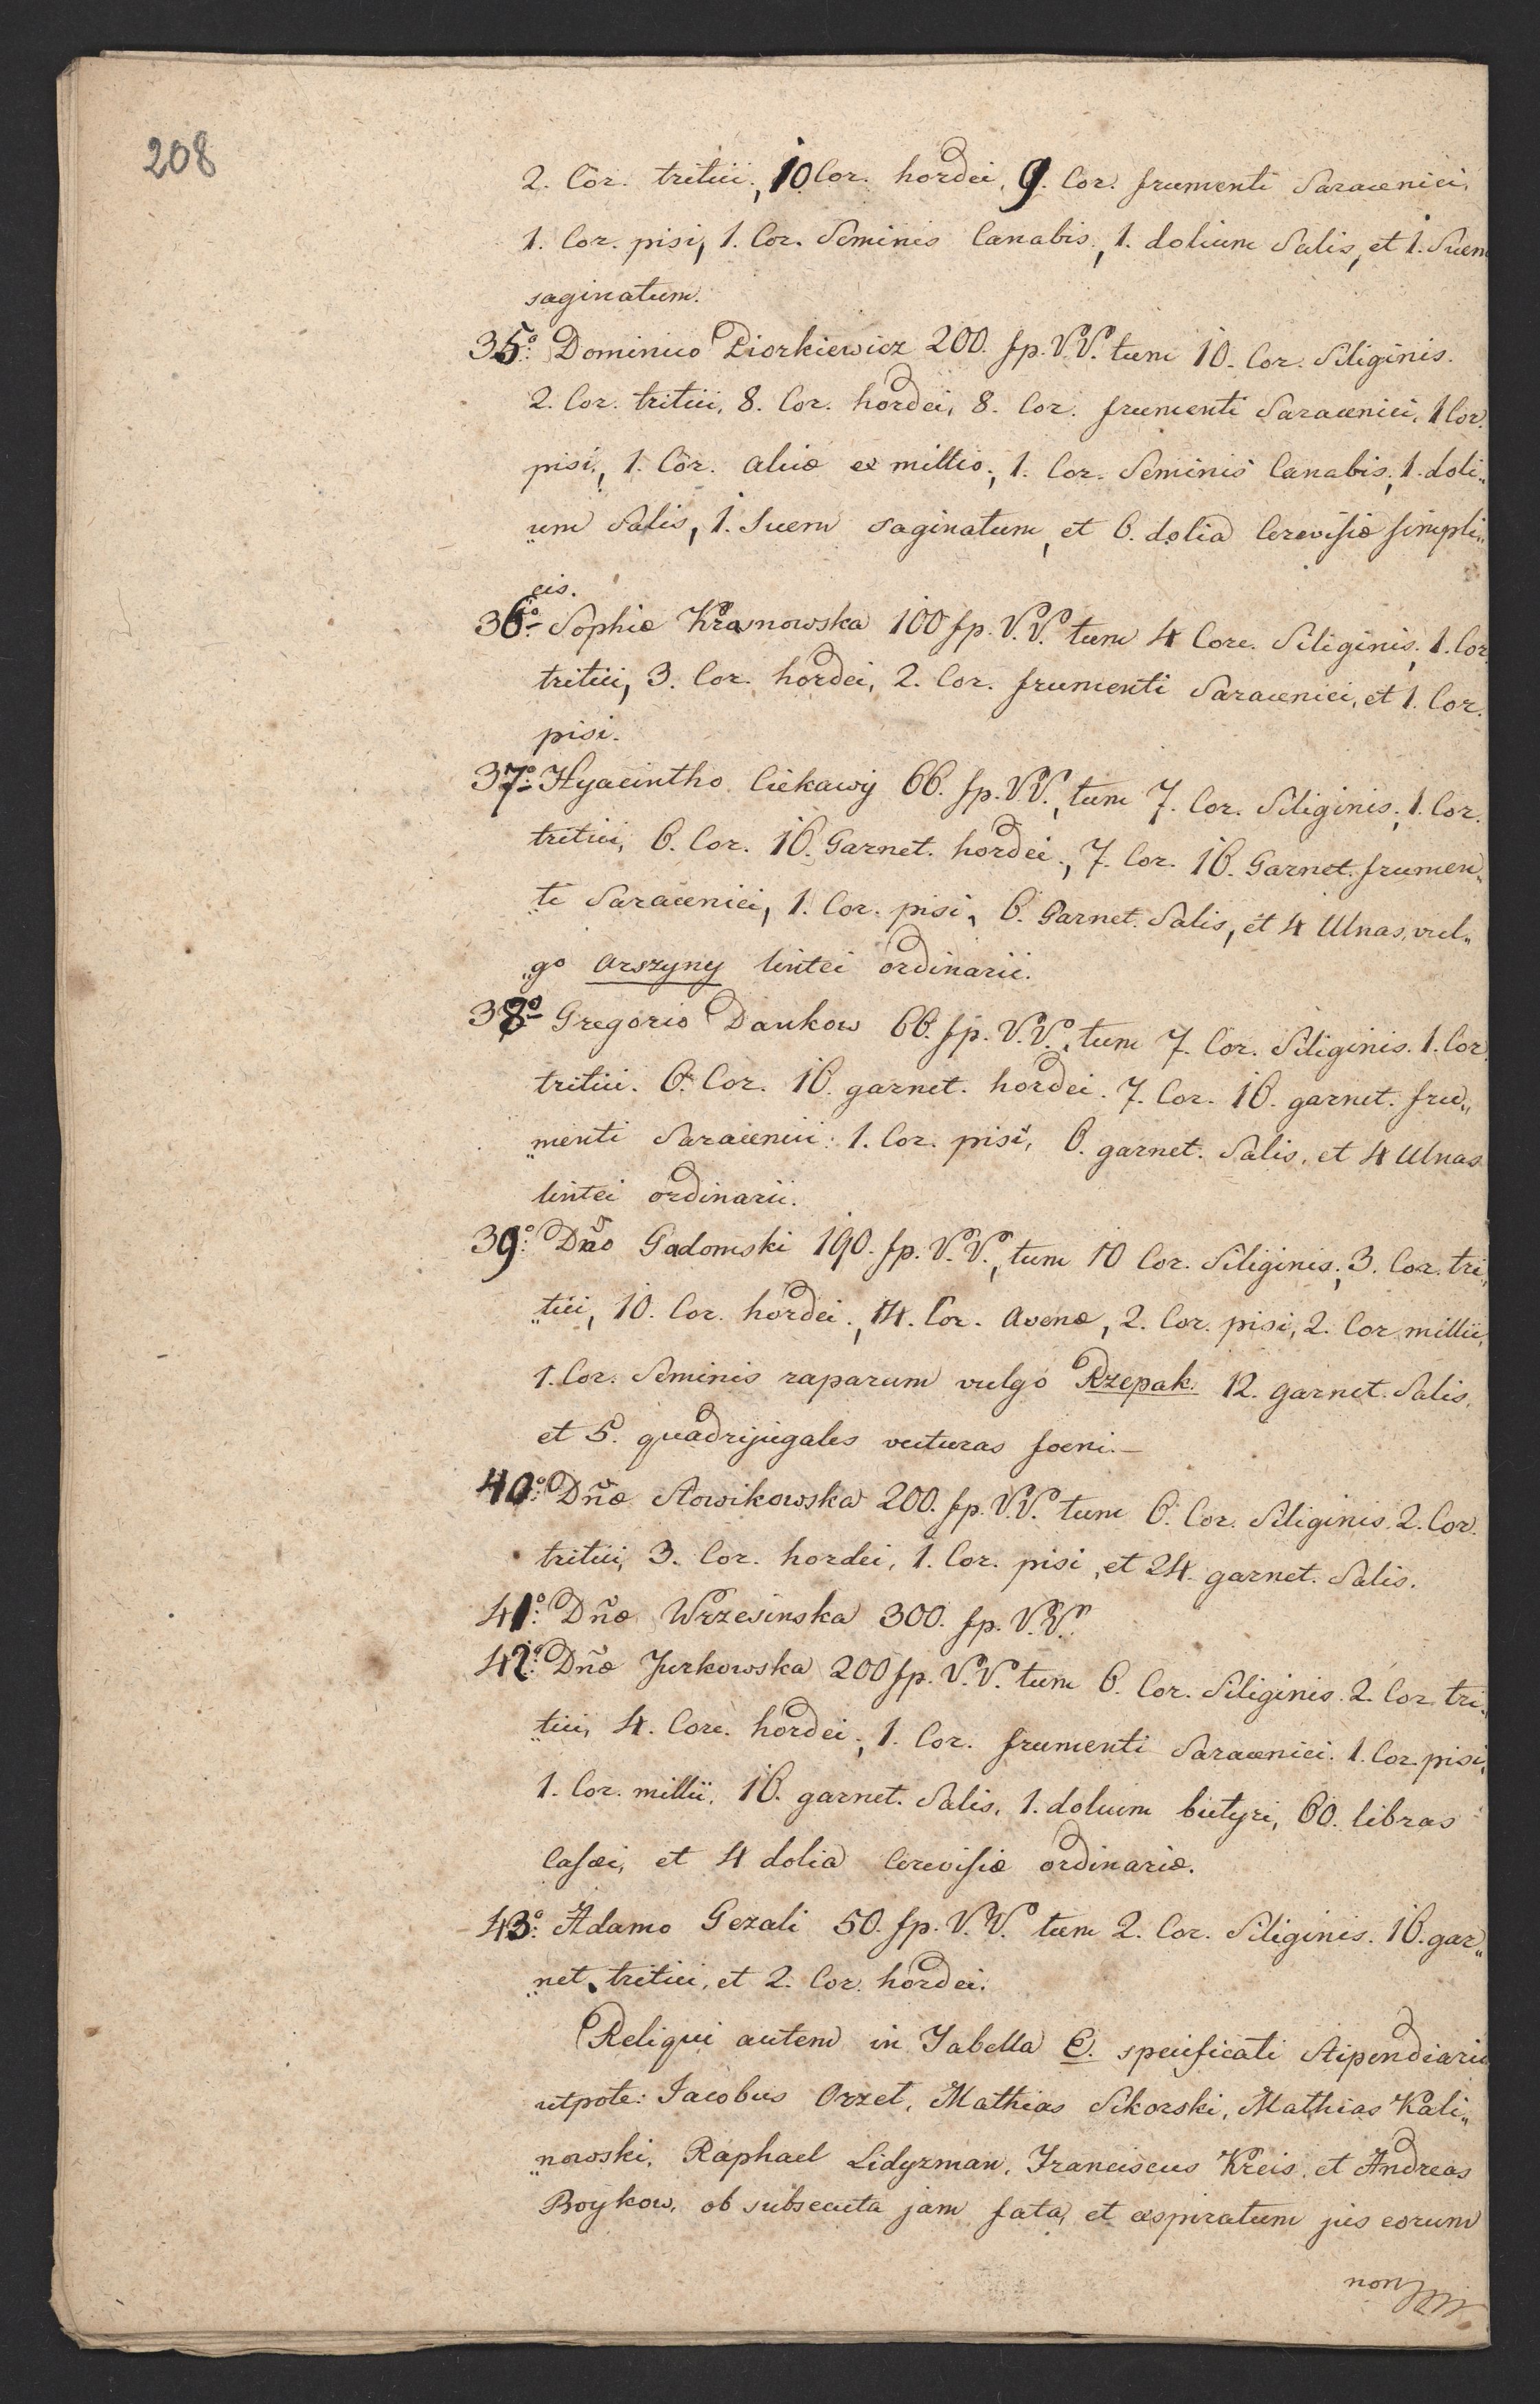 208
2. Cor. tritici, 10 Cor. hordei, 9. Cor. frumenti Saracenici,
1. Cor. pisi, 1. Cor. Seminis Canabis, 1. dolium Salis, et 1. Suem
saginatum.
35º: Dominico Piorkiewicz 200. fp. V.V. tum 10. Cor. Siliginis.
2. Cor. tritici, 8. Cor. hordei, 8. Cor. frumenti Saracenici, 1 Cor.
pisi, 1. Cor. alicæ ex millio, 1. Cor. Seminis Canabis, 1. doli„
„um Salis, 1. Suem saginatum, et 6. dolia Cerevisiæ simpli„
„cis.
36º: Sophiæ Krasnowska 100 fp. V.V. tum 4 Core. Siliginis, 1. Cor.
tritici, 3. Cor. hordei, 2. Cor. frumenti Saracenici, et 1. Cor.
pisi.
37º: Hyacintho Ciekawy 66. fp. V.V., tum 7. Cor. Siliginis, 1. Cor.
tritici, 6. Cor. 16. Garnet. hordei, 7. Cor. 16. Garnet. frumen„
„ti Saracenici, 1. Cor. pisi, 6. Garnet. Salis, et 4 Ulnas, vul„
„go arszyny lintei ordinarii.
38º Gregorio Daukow 66. fp. V.V., tum 7. Cor. Siliginis. 1. Cor.
tritici. 6. Cor. 16. garnet. hordei. 7. Cor. 16. garnet. fru„
„menti Saracenici: 1. Cor. pisi, 6. garnet. Salis, et 4 Ulnas
lintei ordinarii.
39º: Dño Gadomski 190. fp. V.V., tum 10 Cor. Siliginis, 3. Cor. tri„
„tici, 10. Cor. hordei, 14. Cor. Avenæ, 2. Cor. pisi, 2. Cor millii,
1. Cor. Seminis raparum vulgo Rzepak. 12. garnet. Salis,
et 5. quadrijugales vecturas foeni.—
40º: Dñæ Nowikowska 200. fp. V.V. tum 6. Cor. Siliginis. 2. Cor.
tritici, 3. Cor. hordei, 1. Cor. pisi, et 24. garnet. Salis.
41º: Dñæ Wrzesinska 300. fp. V.V.
42º: Dñæ Jurkowska 200 fp. V.V. tum 6. Cor. Siliginis. 2. Cor. tri„
„tici, 4. Core. hordei, 1. Cor. frumenti Saracenici. 1. Cor. pisi,
1. Cor. millii, 16. garnet. Salis, 1. dolium butyri, 60. libras
Casæi, et 4 dolia Cerevisiæ ordinariæ.
43º: Adamo Gezali 50. fp. V.V. tum 2. Cor. Siliginis. 16. gar„
„net. tritici, et 2. Cor. hordei.
Reliqui autem in Tabella C. specificati Stipendiarii
utpote: Jacobus Orzet, Mathias Sikorski, Mathias Kali„
„nowski, Raphael Lidyzman, Franciscus Kreis, et Andreas
Boykow, ob subsecuta jam fata, et exspiratum jus eorum
non